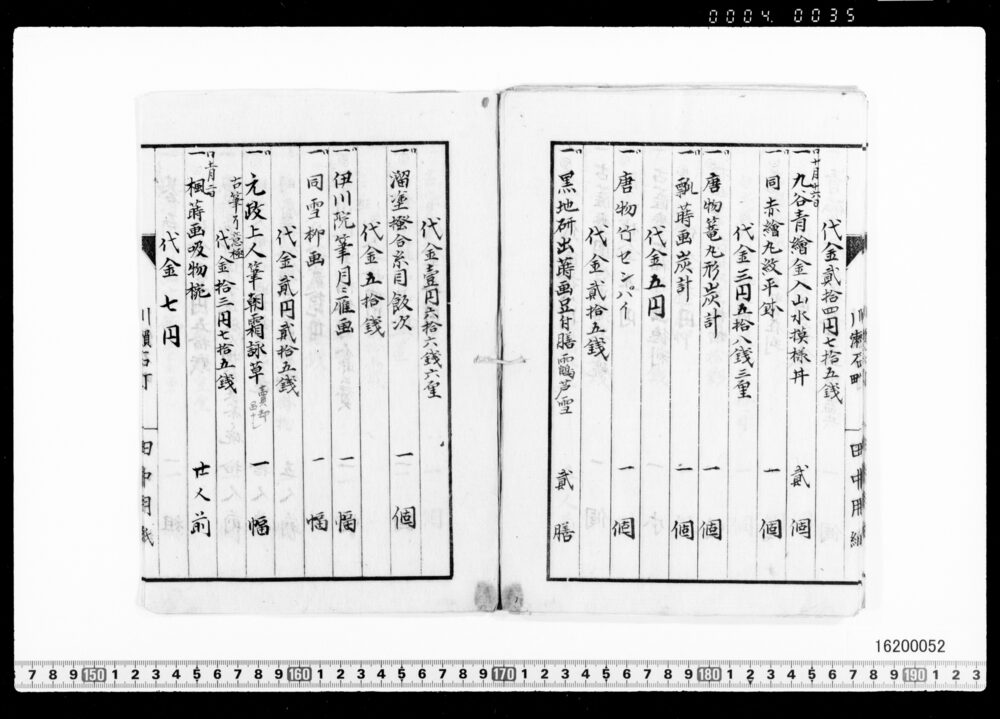 0004 0035
川瀬石町 田中用紙
代金貳拾四円七拾五銭
一 九谷青繪金入山水摸様丼 貳個
一 同赤繪丸紋平鉢 一個
代金三円五拾八銭三厘
一 唐物菴丸形炭計 一個
一 瓢蒔画炭計 一個
代金五円
一 唐物竹センパイ 一個
代金貳拾五銭
一 黒地研出蒔画足付膳 芦雪 貳膳
代金壹円六拾六銭六厘
一 溜塗 合糸目飯次 一個
代金五拾銭
一 伊川院筆月ニ雁画 一幅
一 同雪柳画 一幅
代金貳円貳拾五銭
一 元政上人筆朝霜詠草 一幅
古筆了意極
代金拾三円七拾五銭
一 楓蒔画吸物椀 廿人前
代金七円
川瀬石町 田中用紙
16200052
7 8 9 150 1 2 3 4 5 6 7 8 9 160 1 2 3 4 5 6 7 8 9 170 1 2 3 4 5 6 7 8 9 180 1 2 3 4 5 6 7 8 9 190 1 2 3